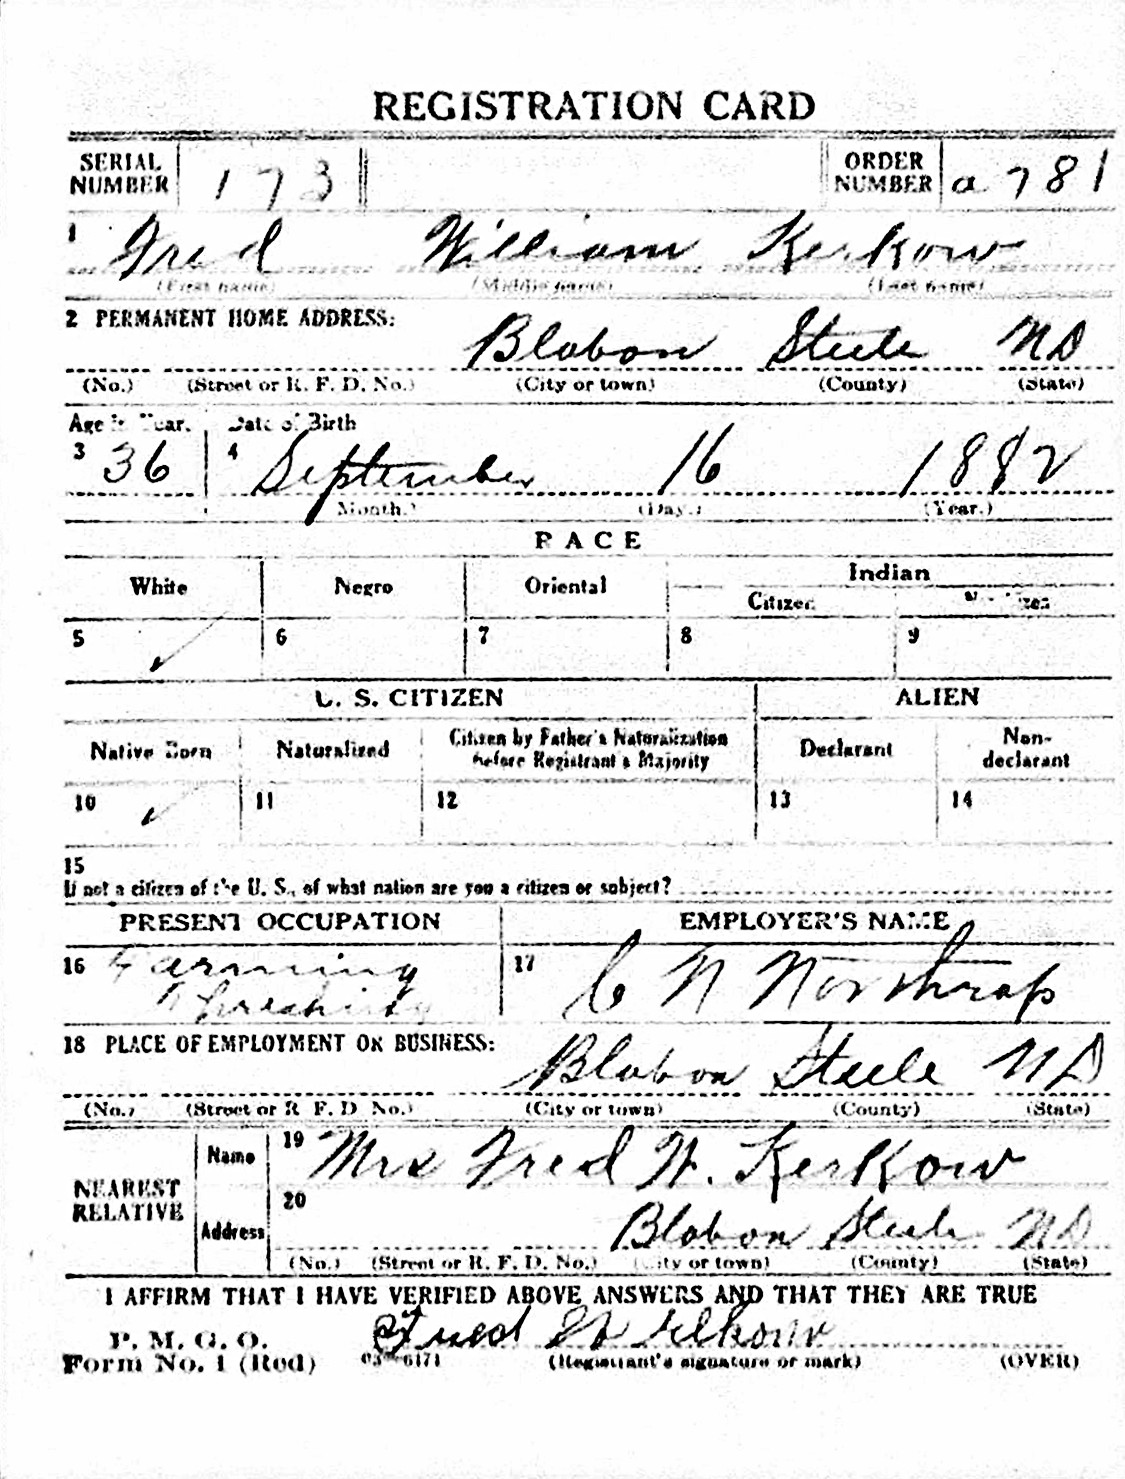 REGISTRATION CARD
SERIAL NUMBER 173 ORDER NUMBER a 781
1 Fred William Kerkow
(First name) (Middle name) (Last name)
2 PERMANENT HOME ADDRESS:
Blabon Steele ND
(No.) (Street or R. F. D. No.) (City or town) (County) (State)
Age in Years Date of Birth
3 36 4 September 16 1882
(Month.) (Day.) (Year.)
RACE
White Negro Oriental Indian
Citizen
5 ✓ 6 7 8 9
U. S. CITIZEN ALIEN
Native Born Naturalized Citizen by Father's Naturalization before Registrant's Majority Declarant Non-declarant
10 ✓ 11 12 13 14
15
If not a citizen of the U. S., of what nation are you a citizen or subject?
PRESENT OCCUPATION EMPLOYER'S NAME
16 Farming 17 C N Northrop
18 PLACE OF EMPLOYMENT OR BUSINESS:
Blabon Steele ND
(No.) (Street or R F. D No.) (City or town) (County) (State)
NEAREST RELATIVE
Name 19 Mrs Fred W. Kerkow
20
Address Blabon Steele ND
(No.) (Street or R. F. D. No.) (City or town) (County) (State)
I AFFIRM THAT I HAVE VERIFIED ABOVE ANSWERS AND THAT THEY ARE TRUE
P. M. G. O.
Form No. 1 (Red) (Registrant's signature or mark) (OVER)